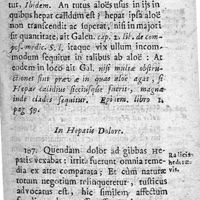 tur, Ibidem. An tutus aloës usus in ijs in
quibus hepar calidum est? hepar ipsa aloë
transcendit ac superat, nisi in majori
sit quantitate, ait Galen. cap. 2. lib. de comp.
s. medic. s. l. itaque vix ullum incom
modum sequitur in talibus ab aloë: At
eodem in loco ait Gal. nisi multæ obstru
ctiones sint pravæ in quas aloë agat, si
Hepar calidius sicciusque fuerit, magna
inde clades sequitur. Ephem. libro 1.
pag 59.
In Hepatis Dolore.
107. Quendam dolor ad gibbas He
patis vexabat: irriti fuerunt omnia reme
dia ex arte comparata; Et cum naturæ
totum negotium relinqueretur, rusticus
advocatus est, hic similem affectum